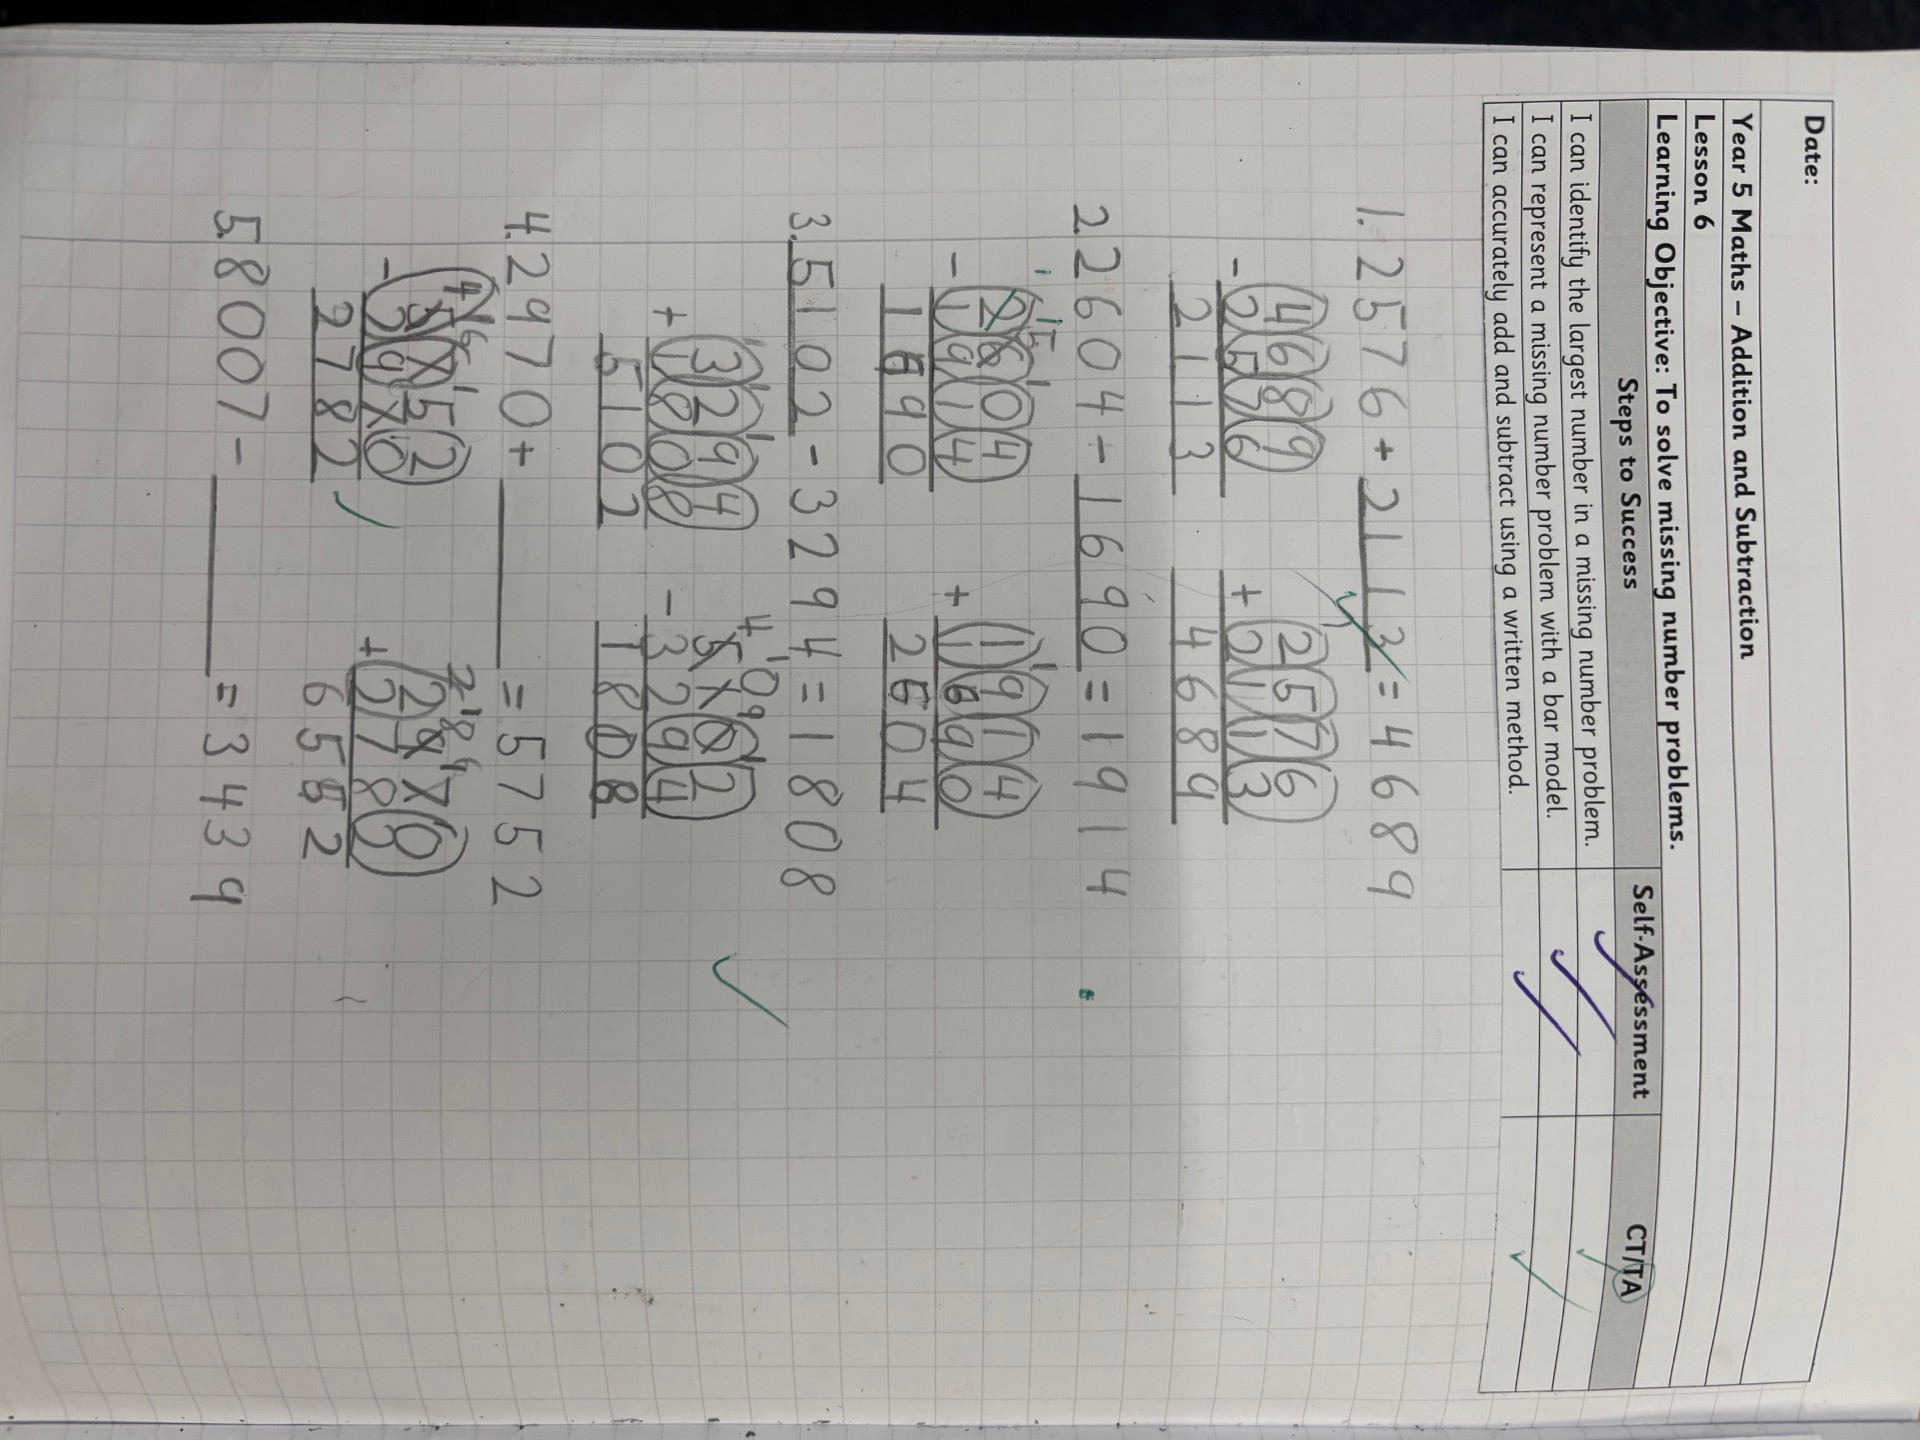 Date:
Year 5 Maths – Addition and Subtraction
Lesson 6
Learning Objective: To solve missing number problems.
Steps to Success Self-Assessment CT/TA
I can identify the largest number in a missing number problem.
I can represent a missing number problem with a bar model.
I can accurately add and subtract using a written method.
1. 2576 + 2113 = 4689
4689 2576
- 2576 + 2113
2113 4689
2. 2604 - 1690 = 1914
1 15 1 1
2604 1914
- 1914 + 1690
1690 2604
3. 5102 - 3294 = 1808
1 1 4 10 9 1
3294 5102
+ 1808 - 3294
5102 1808
4. 2970 + ____ = 5752
4 16 1
5752 2970
- 2970 + 278
2782 6552
5. 8007 - ____ = 3439